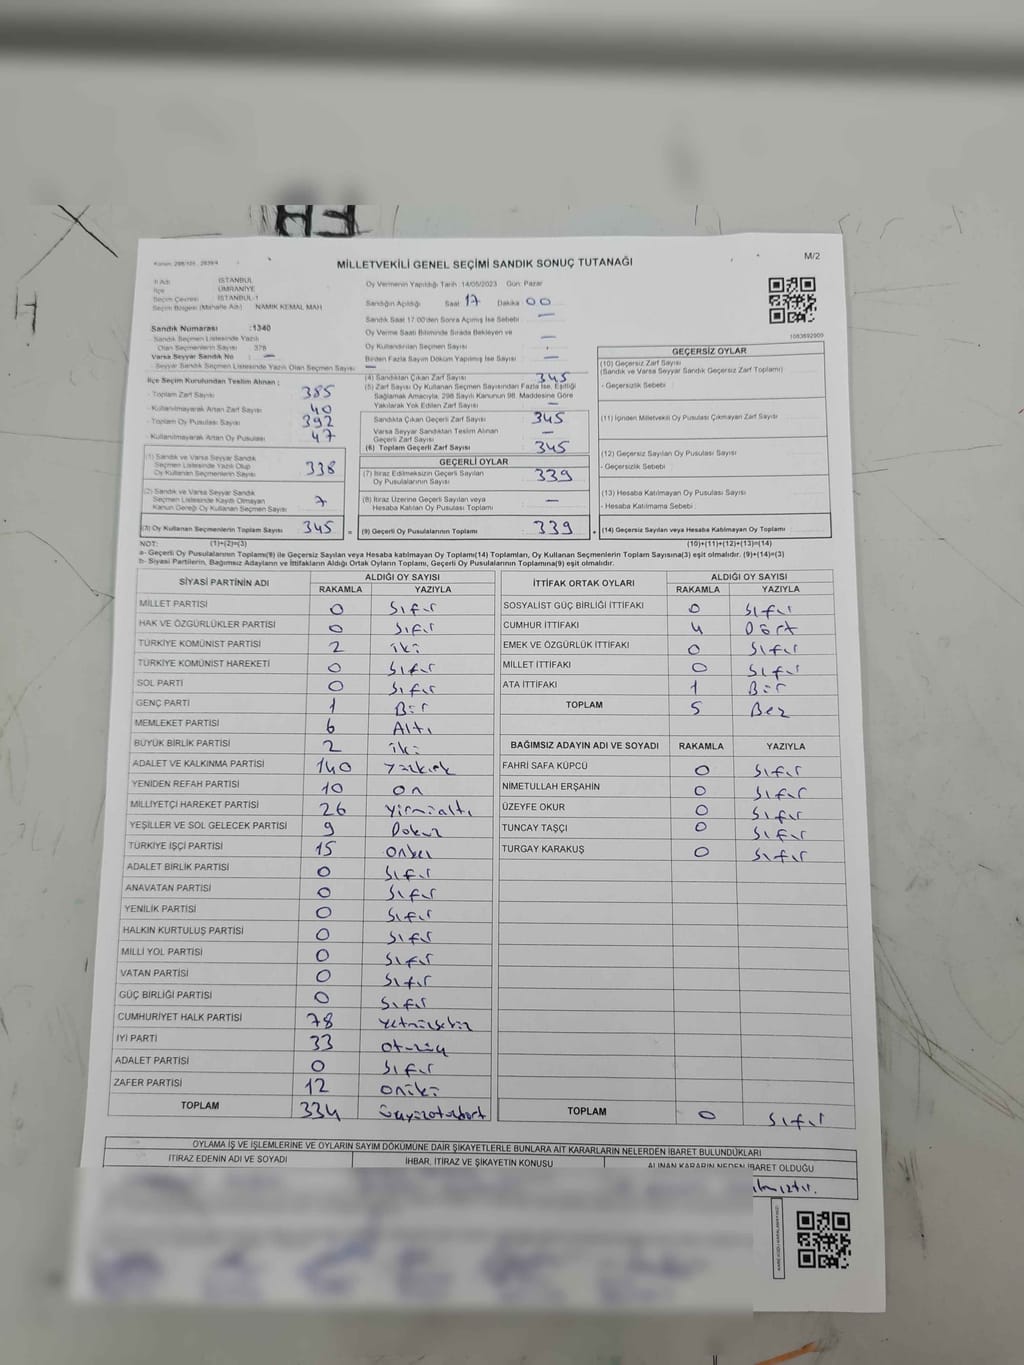 FA
H
M/2
MİLLETVEKİLİ GENEL SEÇİMİ SANDIK SONUÇ TUTANAĞI
İl Adı : İSTANBUL
İlçe : ÜMRANİYE
Seçim Çevresi : İSTANBUL-1
Seçim Bölgesi (Mahalle Adı) : NAMIK KEMAL MAH
Oy Vermenin Yapıldığı Tarih : 14/05/2023 Gün: Pazar
Sandığın Açıldığı Saat 17 Dakika 00
Sandık Saat 17:00'den Sonra Açılmış İse Sebebi —
Oy Verme Saati Bitiminde Sırada Bekleyen ve
Oy Kullandırılan Seçmen Sayısı —
Birden Fazla Sayım Döküm Yapılmış İse Sayısı —
Sandık Numarası :1340
Sandık Seçmen Listesinde Yazılı
Olan Seçmenlerin Sayısı : 378
Varsa Seyyar Sandık No : —
Seyyar Sandık Seçmen Listesinde Yazılı Olan Seçmen Sayısı : —
İlçe Seçim Kurulundan Teslim Alınan ;
- Toplam Zarf Sayısı 385
- Kullanılmayarak Artan Zarf Sayısı 40
- Toplam Oy Pusulası Sayısı 392
- Kullanılmayarak Artan Oy Pusulası 47
(1) Sandık ve Varsa Seyyar Sandık
Seçmen Listesinde Yazılı Olup
Oy Kullanan Seçmenlerin Sayısı 338
(2) Sandık ve Varsa Seyyar Sandık
Seçmen Listesinde Kayıtlı Olmayan
Kanun Gereği Oy Kullanan Seçmen Sayısı 7
(3) Oy Kullanan Seçmenlerin Toplam Sayısı 345 =
(4) Sandıktan Çıkan Zarf Sayısı 345
(5) Zarf Sayısı Oy Kullanan Seçmen Sayısından Fazla İse, Eşitliği
Sağlamak Amacıyla, 298 Sayılı Kanunun 98. Maddesine Göre
Yakılarak Yok Edilen Zarf Sayısı —
Sandıkta Çıkan Geçerli Zarf Sayısı 345
Varsa Seyyar Sandıktan Teslim Alınan
Geçerli Zarf Sayısı —
(6) Toplam Geçerli Zarf Sayısı 345
GEÇERLİ OYLAR
(7) İtiraz Edilmeksizin Geçerli Sayılan
Oy Pusulalarının Sayısı 339
(8) İtiraz Üzerine Geçerli Sayılan veya
Hesaba Katılan Oy Pusulası Toplamı —
(9) Geçerli Oy Pusulalarının Toplamı 339 +
1083692900
GEÇERSİZ OYLAR
(10) Geçersiz Zarf Sayısı
(Sandık ve Varsa Seyyar Sandık Geçersiz Zarf Toplamı)
- Geçersizlik Sebebi :
(11) İçinden Milletvekili Oy Pusulası Çıkmayan Zarf Sayısı
(12) Geçersiz Sayılan Oy Pusulası Sayısı
- Geçersizlik Sebebi
(13) Hesaba Katılmayan Oy Pusulası Sayısı
- Hesaba Katılmama Sebebi :
(14) Geçersiz Sayılan veya Hesaba Katılmayan Oy Toplamı
NOT: (1)+(2)=(3) (10)+(11)+(12)+(13)=(14)
a- Geçerli Oy Pusulalarının Toplamı(9) ile Geçersiz Sayılan veya Hesaba katılmayan Oy Toplamı(14) Toplamları, Oy Kullanan Seçmenlerin Toplam Sayısına(3) eşit olmalıdır. (9)+(14)=(3)
b- Siyasi Partilerin, Bağımsız Adayların ve İttifakların Aldığı Ortak Oyların Toplamı, Geçerli Oy Pusulalarının Toplamına(9) eşit olmalıdır.
SİYASİ PARTİNİN ADI ALDIĞI OY SAYISI
RAKAMLA YAZIYLA
MİLLET PARTİSİ 0 Sıfır
HAK VE ÖZGÜRLÜKLER PARTİSİ 0 Sıfır
TÜRKİYE KOMÜNİST PARTİSİ 2 iki
TÜRKİYE KOMÜNİST HAREKETİ 0 Sıfır
SOL PARTİ 0 Sıfır
GENÇ PARTİ 1 Bir
MEMLEKET PARTİSİ 6 Altı
BÜYÜK BİRLİK PARTİSİ 2 iki
ADALET VE KALKINMA PARTİSİ 140 Yüzkırk
YENİDEN REFAH PARTİSİ 10 on
MİLLİYETÇİ HAREKET PARTİSİ 26 Yirmialtı
YEŞİLLER VE SOL GELECEK PARTİSİ 9 Dokuz
TÜRKİYE İŞÇİ PARTİSİ 15 Onbeş
ADALET BİRLİK PARTİSİ 0 Sıfır
ANAVATAN PARTİSİ 0 Sıfır
YENİLİK PARTİSİ 0 Sıfır
HALKIN KURTULUŞ PARTİSİ 0 Sıfır
MİLLİ YOL PARTİSİ 0 Sıfır
VATAN PARTİSİ 0 Sıfır
GÜÇ BİRLİĞİ PARTİSİ 0 Sıfır
CUMHURİYET HALK PARTİSİ 78 Yetmişsekiz
İYİ PARTİ 33 Otuzüç
ADALET PARTİSİ 0 Sıfır
ZAFER PARTİSİ 12 Oniki
TOPLAM 334 üçyüzotuzdört
İTTİFAK ORTAK OYLARI ALDIĞI OY SAYISI
RAKAMLA YAZIYLA
SOSYALİST GÜÇ BİRLİĞİ İTTİFAKI 0 Sıfır
CUMHUR İTTİFAKI 4 Dört
EMEK VE ÖZGÜRLÜK İTTİFAKI 0 Sıfır
MİLLET İTTİFAKI 0 Sıfır
ATA İTTİFAKI 1 Bir
TOPLAM 5 Beş
BAĞIMSIZ ADAYIN ADI VE SOYADI RAKAMLA YAZIYLA
FAHRİ SAFA KÜPCÜ 0 Sıfır
NİMETULLAH ERŞAHİN 0 Sıfır
ÜZEYFE OKUR 0 Sıfır
TUNCAY TAŞÇI 0 Sıfır
TURGAY KARAKUŞ 0 Sıfır
TOPLAM 0 Sıfır
OYLAMA İŞ VE İŞLEMLERİNE VE OYLARIN SAYIM DÖKÜMÜNE DAİR ŞİKAYETLERLE BUNLARA AİT KARARLARIN NELERDEN İBARET BULUNDUKLARI
İTİRAZ EDENİN ADI VE SOYADI İHBAR, İTİRAZ VE ŞİKAYETİN KONUSU ALINAN KARARIN NEDEN İBARET OLDUĞU